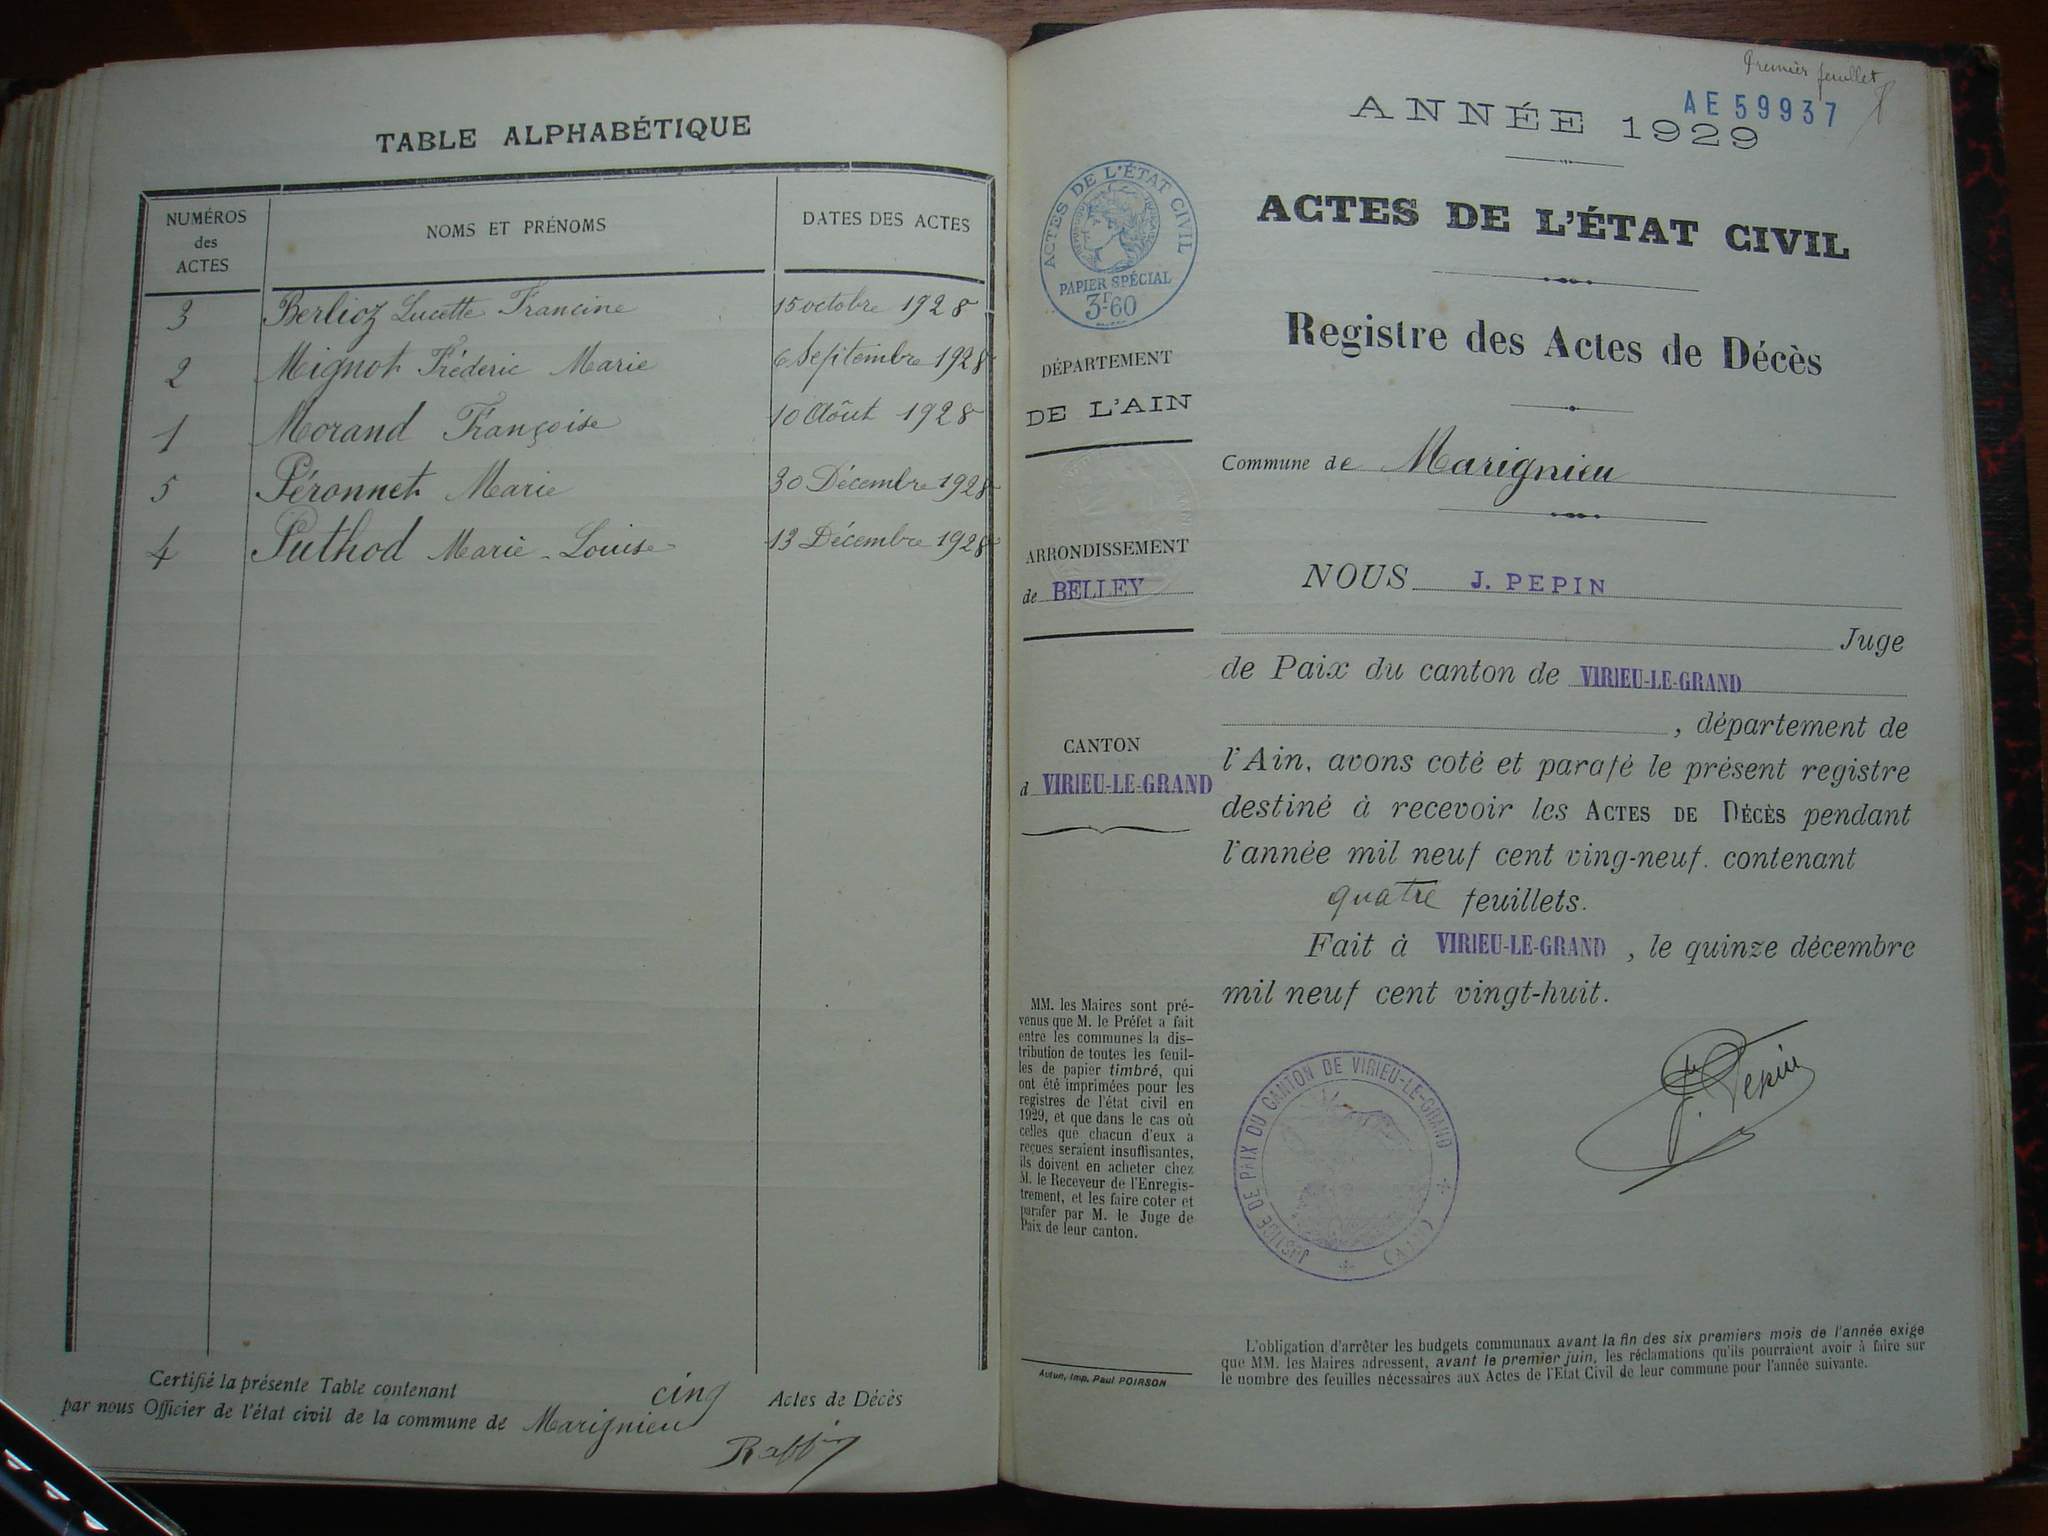 TABLE ALPHABÉTIQUE
NUMÉROS des ACTES
NOMS ET PRÉNOMS
DATES DES ACTES
3 Berlioz Lucette Francine 15 octobre 1928
2 Mignot Fréderic Marie 6 Septembre 1928
1 Morand Françoise 10 Aôut 1928
5 Péronnet Marie 30 Décembre 1928
4 Puthod Marie-Louise 13 Décembre 1928
Certifié la présente Table contenant cinq Actes de Décès
par nous Officier de l'état civil de la commune de Marignieu
Premier feuillet
AE 59937
ANNÉE 1929
ACTES DE L'ÉTAT CIVIL
PAPIER SPÉCIAL
3F60
ACTES DE L'ÉTAT CIVIL
Registre des Actes de Décès
DÉPARTEMENT
DE L'AIN
Commune de Marignieu
ARRONDISSEMENT
de BELLEY
CANTON
d VIRIEU-LE-GRAND
MM. les Maires sont pré-
venus que M. le Préfet a fait
entre les communes la dis-
tribution de toutes les feuil-
les de papier timbré, qui
ont été imprimées pour les
registres de l'état civil en
1929, et que dans le cas où
celles que chacun d'eux a
reçues seraient insuffisantes,
ils doivent en acheter chez
M. le Receveur de l'Enregis-
trement, et les faire coter et
parafer par M. le Juge de
Paix de leur canton.
Autun, Imp. Paul POIRSON
NOUS J. PEPIN
Juge
de Paix du canton de VIRIEU-LE-GRAND
, département de
l'Ain, avons coté et parafé le présent registre
destiné à recevoir les ACTES DE DÉCÈS pendant
l'année mil neuf cent ving-neuf. contenant
quatre feuillets.
Fait à VIRIEU-LE-GRAND, le quinze décembre
mil neuf cent vingt-huit.
J. Pepin
JUSTICE DE PAIX DU CANTON DE VIRIEU-LE-GRAND
(AIN)
L'obligation d'arrêter les budgets communaux avant la fin des six premiers mois de l'année exige
que MM. les Maires adressent, avant le premier juin, les réclamations qu'ils pourraient avoir à faire sur
le nombre des feuilles nécessaires aux Actes de l'Etat Civil de leur commune pour l'année suivante.